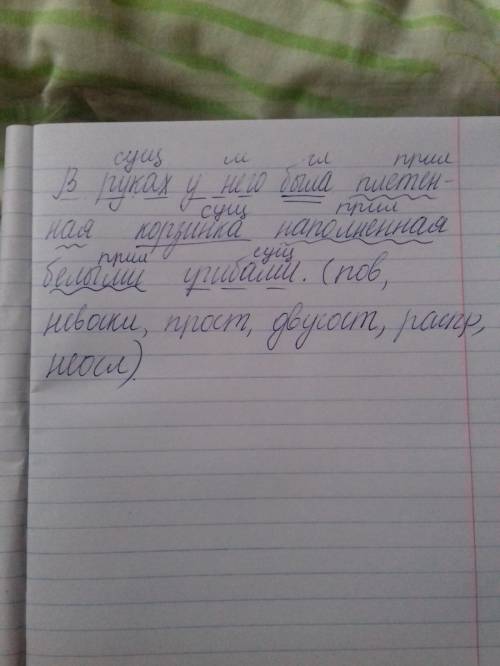 сущ м гл прил
В руках у него была плетен-
сущ прил
ная корзинка наполненная
прил сущ
белыми грибами. (пов,
невоскл, прост, двусост, распр,
неосл).